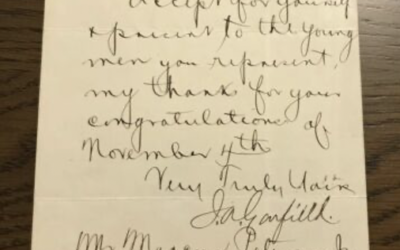 Accept for yourself
& present to the young
men you represent,
my thanks for your
congratulations of
November 4th
Very Truly Yours
J.A. Garfield.
Mr.